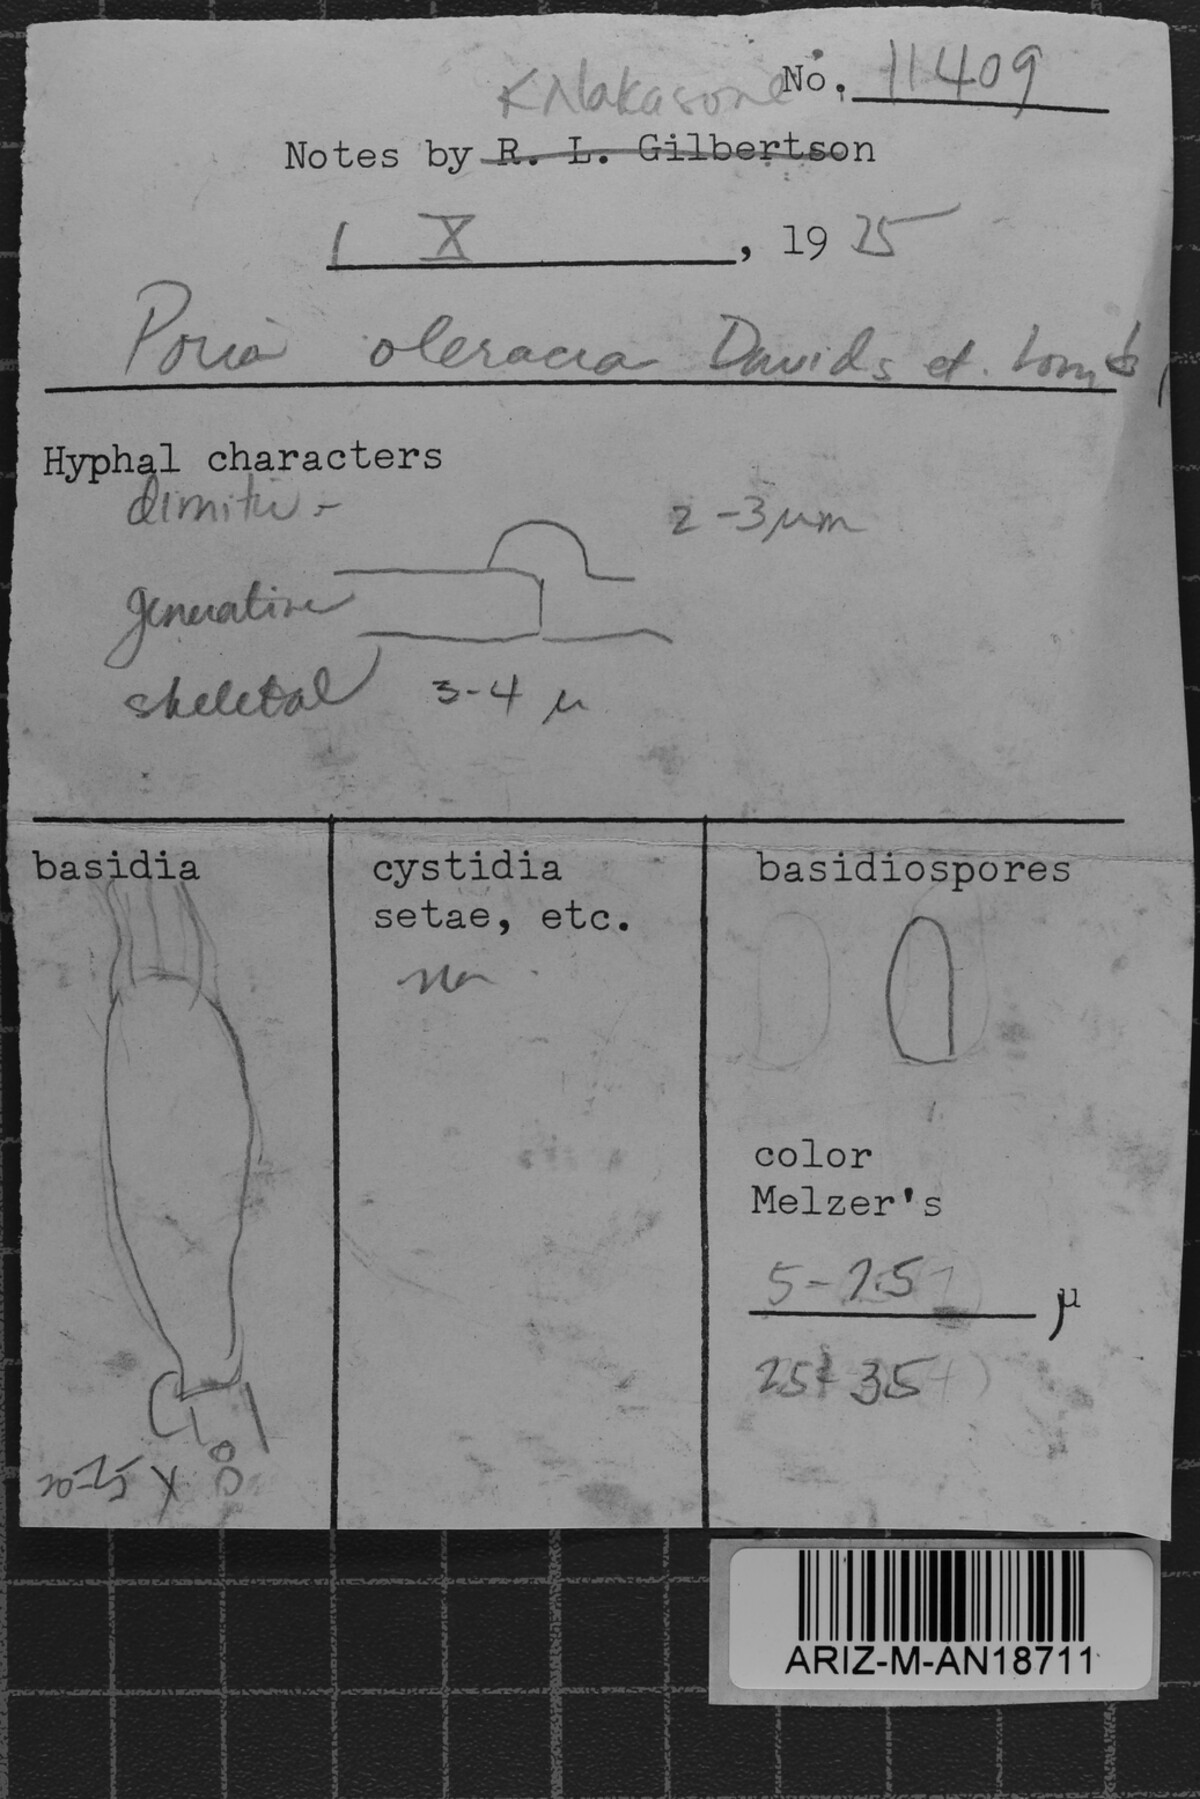 No. 11409
K Nakasone
Notes by R. L. Gilbertson
1 X, 1975
Poria oleracea Davids et. Lomb,
Hyphal characters
dimitic -
2-3 μm
generative
skeletal 3-4 μ
basidia
20-25 X 8
cystidia
setae, etc.
no
basidiospores
color
Melzer's
5-7.5 μ